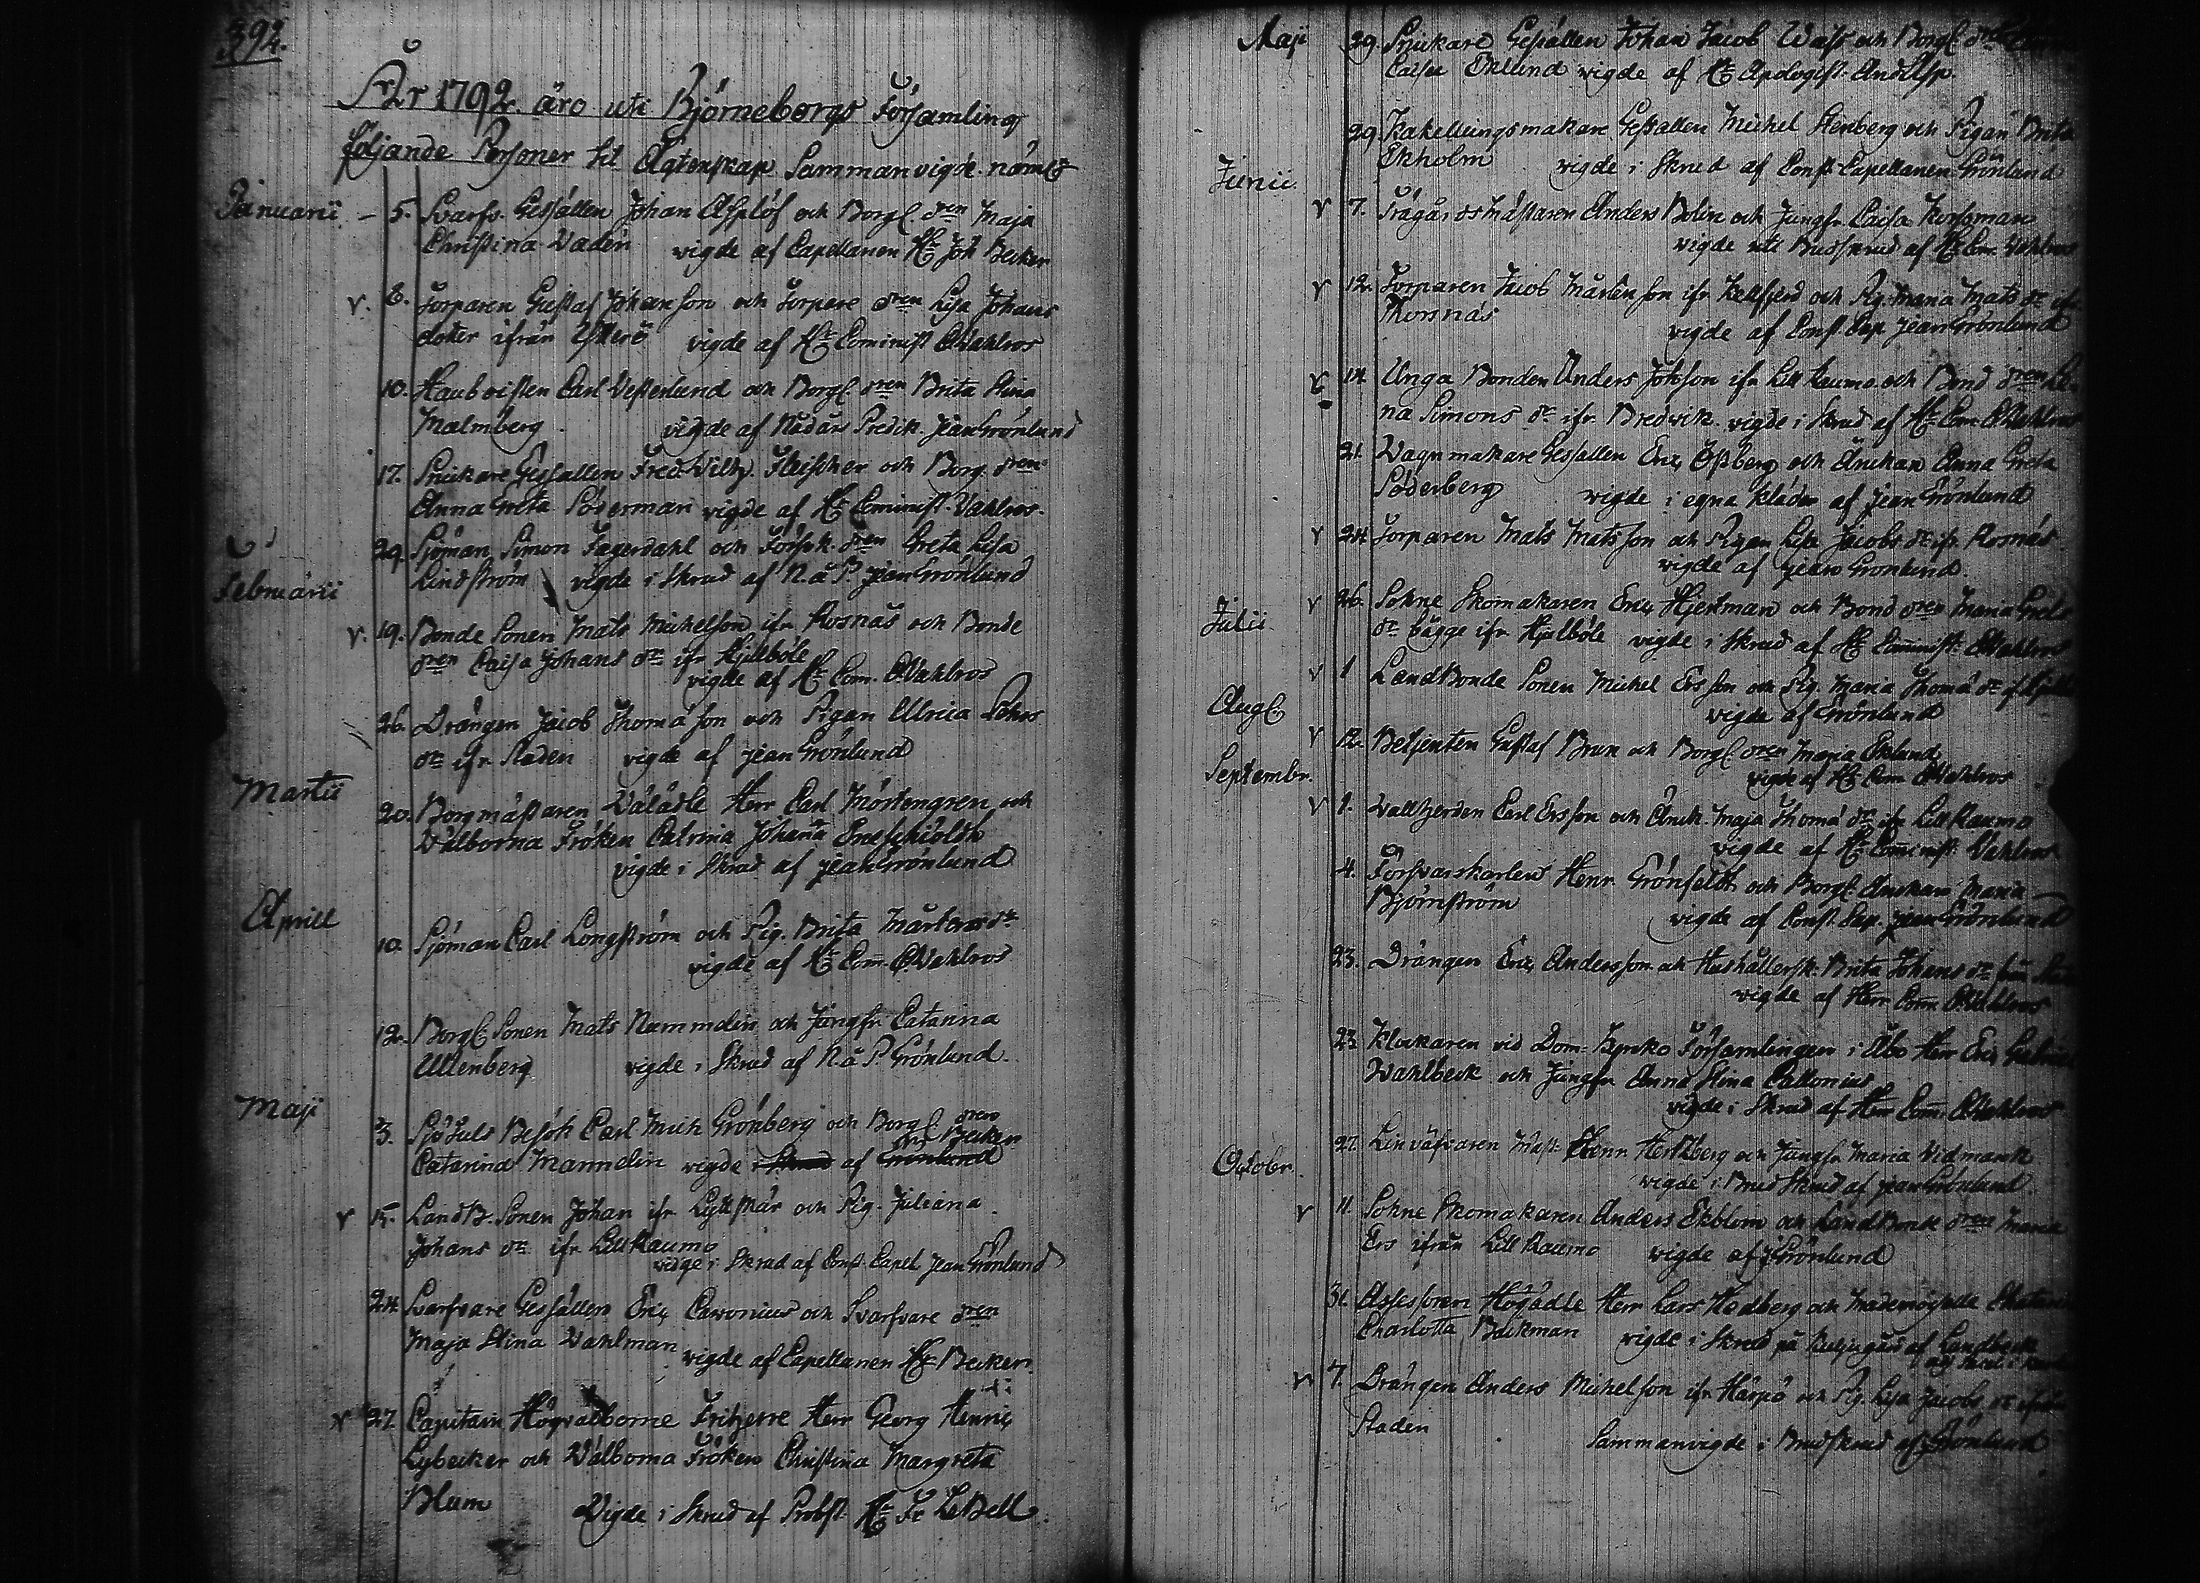 392.
År 1792. äro uti Björneborgs Församling
följande Personer til Ägtenskap Sammanvigde. nämL
Januarii – 5. Svarfv. Gesällen Johan Asplöf och Borgl dren Maja
Christina Vadén vigde af Capellanen Hr Joh Becker
v. 8. Torparen Gustaf Johansson och Torpare dren Lisa Johans
doter ifrån Ytterö vigde af Hr Cominist CWahlros
10. Hautboisten Carl Vesterlund och Borgl. dren Brita Stina
Malmberg vigde af Nådårs Predik. Jean Grönlund
17. Snickare Gesällen Fred. Vilh. Fleischer och Borg. dren
Anna Greta Söderman vigde af Hr Cominist. Vahlros.
Februarii
29. Sjöman Simon Fagerdahl och Försvk. dren Greta Lisa
Lindström vigde i Skrud af N. å P. Jean Grönlund
v. 19. Bonde Sonen Mats Michelson ifr Rosnäs och Bonde
dren Caisa Johans dr ifr Hjulböle
vigde af Hr Com. CVahlros
26. Drängen Jacob Thomason och Pigan Ulrica
dr ifr. Staden vigde af Jean Grönlund
Martii
20. Borgmästaren Välädle Herr Carl Mörtengren och
Välborna Fröken Catrina Johana Eneschiöldh
vigde i Skrud af Jean Grönlund
Aprill
10. Sjöman Carl Longström och Pig. Brita Mårtens dr
vigde af Hr Com. CVahlros
12. Borgl Sonen Mats Nummelin och Jungfr Catarina
Ullenberg vigde i Skrud af N å P. Grönlund.
Maji
3. Sjö Tuls Besök Carl Mich Grönberg och Borgl. dren
Catarina Mannelin vigde i Skrud af Grönlund Hr Becker
v 15. LandB. Sonen Johan ifr Lyttskär och Pig. Juliana
Johans dr ifr Lill Raumo
vidge i Skrud af Const. Capel Jean Grönlund
24. Svarfvare Gesällen Eric Carvonius och Svarfvare dren
Maja Stina Wahlman vigde af Capellanen Hr Becker
v 27 Capitain Högvälborne Friherre Herr Georg Henric
Lybecker och Välborna Fröken Christina Margreta
Blum Vigde i Skrud af Probst. Hr Fr LeBell.
Maji 29 Snickare Gesällen Johan Jacob och Borgl dren
Caisa Eklund vigde af Hr Apologist.
29 Kakelungsmakare Gesällen Michel Stenberg och Pigan Brita
Ekholm vigde i Skrud af Const. Capellanen Grönlund
Junii
v 7. Trägårdsmästaren Anders Bolin och Jungfr Caisa
vigde uti Brudskrud af Hr Com. Vahlros
v 12. Torparen Jacob Mårtenson ifr Kellfjerd och Pig. Maria Mats dr ifr
vigde af Const. Cap. Jean Grönlund
v 14. Unga Bonden Anders Johson ifr Lill Raumo och Bond dren Le-
na Simons dr ifr. Bredvik. vigde i Skrud af Hr Com. CVahlros
21. Wagnmakare Gesällen Eric Östberg och Änckan Anna Greta
Söderberg vigde i egna kläder af Jean Grönlund
v 24. Torparen Mats Matsson och Pigan Lisa Jacobs dr ifr Rosnäs
vigde af Jean Grönlund.
v 26. Sokne Skomakaren Eric Hjertman och Bond dren Maria
dr bägge ifr Hjulböle vigde i Skrud af Hr Cominist. CVahlros
Julii
v 1 LandBonde Sonen Michel Ersson och Pig. Maria Thoma dr
vigde af Grönlund
Augl
v 12. Betjenten Gustaf Brun och Borgl dren Maria Eklund
vigde af Hr Com CVahlros
Septembr.
v 1. Vallherden Carl Ersson och Änck. Maja Thoma dr ifr Lill Raumo
vigde af Hr Cominist. Vahlros
4. Försvarskarlen Henr Grönfeldt och Borgl. Änckan Maria
Björnström vigde af Const. Cap. Jean Grönlund
23. Drängen Eric Andersson och Hushållersk. Brita Johans dr
vigde af Herr Com. CVahlros
23 Klockaren vid Dom-Kyrko Församlingen i Åbo Herr Eric
Wahlbeck och Jungfr Anna Stina Pallonius
vigde i Skrud af Herr Com. CVahlros
27. Linväfvaren Mäst. Henr Hertzberg och Jungfr Maria Vidmark
vigde i Brud Skrud af Jean Grönlund.
Octobr.
v 11. Sokne Skomakaren Anders Ekblom och LandBonde dren Maria
Ers ifrån Lill Raumo vigde af J Grönlund
31. Assessoren Högädle Herr Lars Hedberg och Mademoiselle
Charlotta Bäckman vigde i Skrud på af
v 7. Drängen Anders Michelson ifr Härpö och Pig. Lisa Jacobs dr ifrån
Staden Sammanvigde i Brudskrud af Grönlund